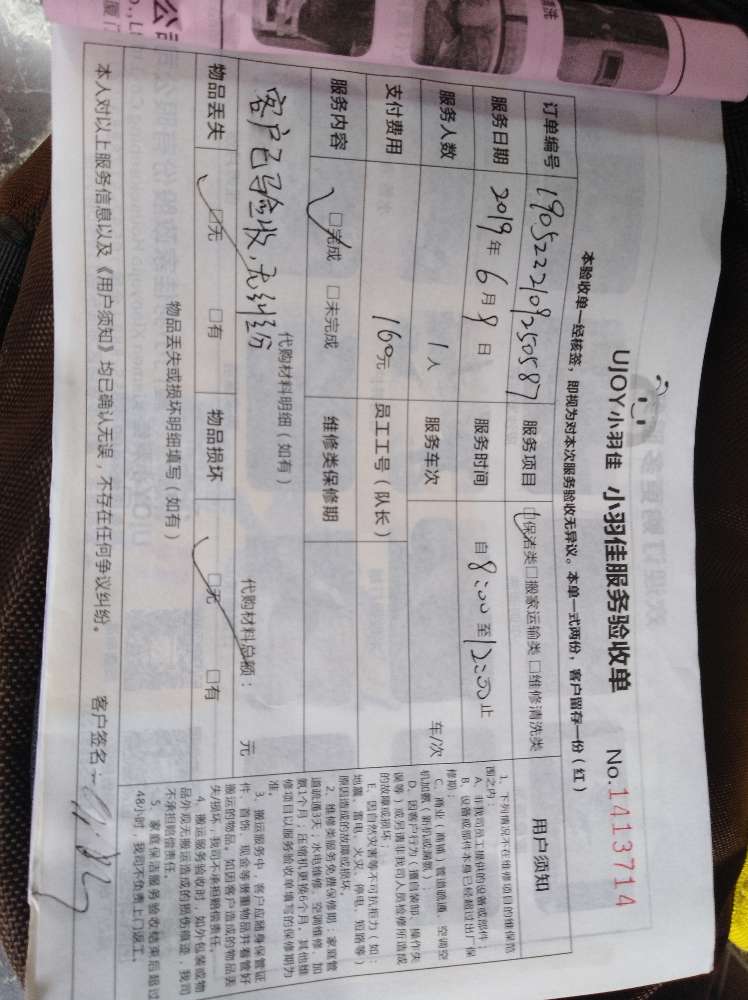 UJOY小羽佳 小羽佳服务验收单 No.1413714
本验收单一经核签，即视为对本次服务验收无异议。本单一式两份，客户留存一份（红）
订单编号 1905222109250587 服务项目 ☑保洁类□搬家运输类□维修清洗类
服务日期 2019年6月9日 服务时间 自8:00至12:00止
服务人数 1人 服务车次 车/次
支付费用 160元 员工工号（队长）
服务内容 ☑完成 □未完成 维修类保修期
代购材料明细（如有） 代购材料总额： 元
客户已验收，无纠纷
物品丢失 ☑无 □有 物品损坏 ☑无 □有
物品丢失或损坏明细填写（如有）
本人对以上服务信息以及《用户须知》均已确认无误，不存在任何争议纠纷。 客户签名：
用户须知
1、下列情况不在维修项目的维保范
围之内：
A、非我司员工提供的设备或部件；
B、设备或部件本身已经超过出厂保
修期；
C、商业（商铺）管道疏通，空调空
机加氨（新机或漏氨）；
D、因客户行为（擅自装卸、操作失
误等）或另请非我司人员检修所造成
的故障或损坏；
E、因自然灾害等不可抗拒力（如：
地震、雷电、火灾、停电、短路等）
原因造成的故障或损坏。
2、维修类服务免费保修期：家庭管
道疏通3天；水电维修、空调维修、加
氨1个月，压缩机更换6个月。其他维
修项目以服务验收单填写的保修期为
准。
3、搬运服务中，客户应随身保管证
件、首饰、现金等贵重物品并看管好
搬运的物品。如因客户造成的物品丢
失/损坏，我司不承担赔偿责任。
4、搬运服务验收时，如外包装或物
品外观无搬运造成的损伤痕迹，我司
不承担赔偿责任。
5、家庭保洁服务验收结束后超过
48小时，我司不负责上门返工。